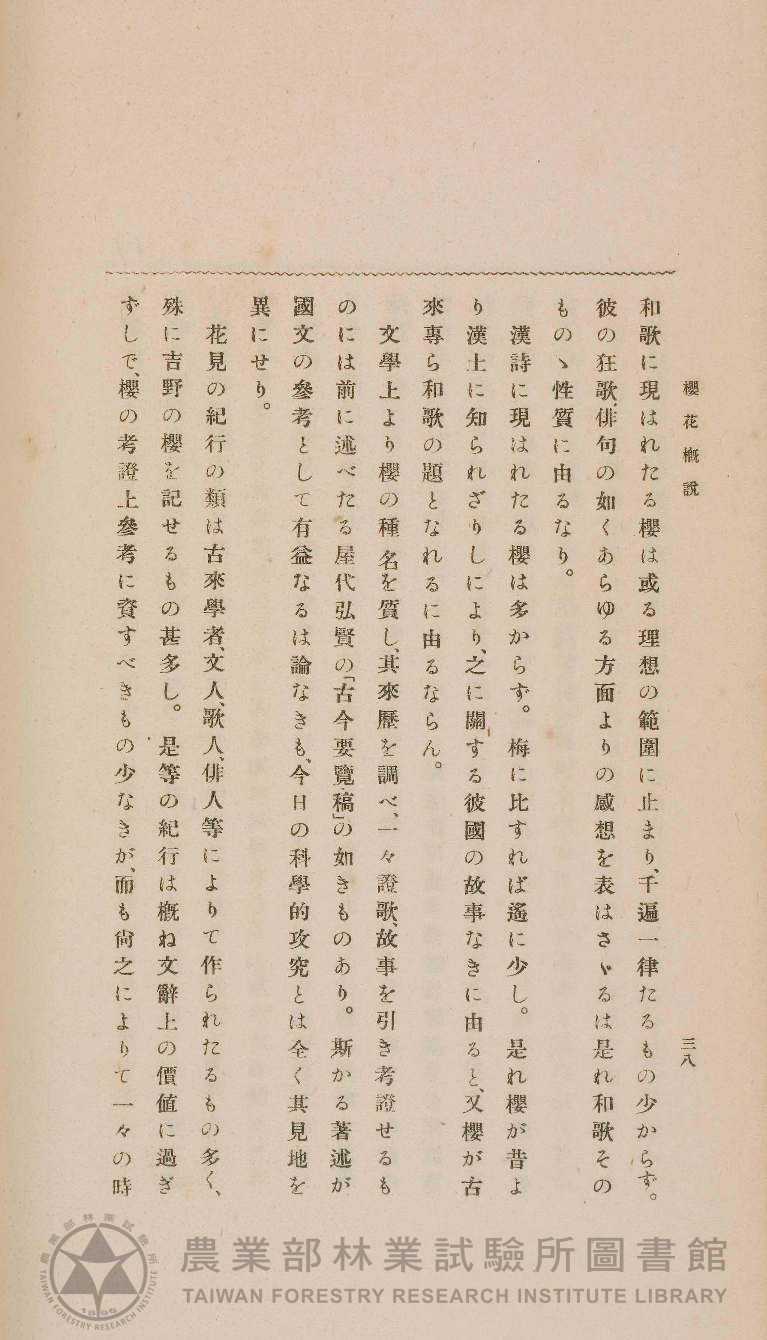 櫻花概説
三八
和歌に現はれたる櫻は或る理想の範圍に止まり、千遍一律たるもの少からず。
彼の狂歌、俳句の如くあらゆる方面よりの感想を表はさゞるは是れ和歌その
ものゝ性質に由るなり。
漢詩に現はれたる櫻は多からず。梅に比すれば遙に少し。是れ櫻が昔よ
り漢土に知られざりしにより、之に關する彼國の故事なきに由ると、又櫻が古
來專ら和歌の題となれるに由るならん。
文學上より櫻の種名を質し、其來歴を調べ、一々證歌、故事を引き考證せるも
のには前に述べたる屋代弘賢の「古今要覽稿」の如きものあり。斯かる著述が
國文の參考として有益なるは論なきも、今日の科學的攻究とは全く其見地を
異にせり。
花見の紀行の類は古來學者、文人、歌人、俳人等によりて作られたるもの多く、
殊に吉野の櫻を記せるもの甚多し。是等の紀行は概ね文辭上の價値に過ぎ
ずしで、櫻の考證上參考に資すべきもの少なきが、而も尙之によりて一々の時
農業部林業試驗所圖書館
TAIWAN FORESTRY RESEARCH INSTITUTE LIBRARY
農業部林業試驗所
TAIWAN FORESTRY RESEARCH INSTITUTE
1896